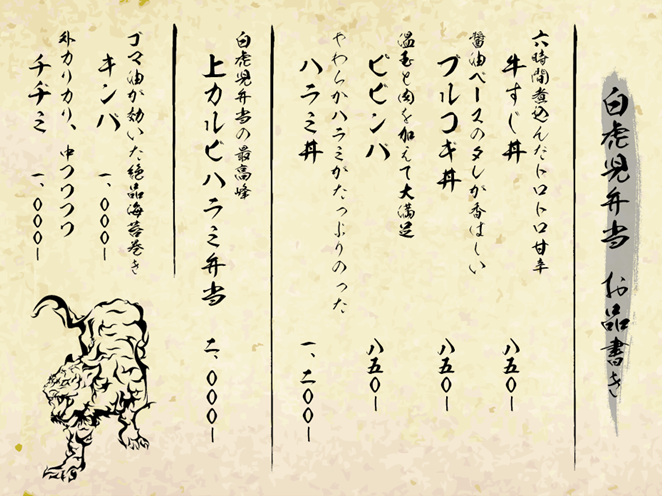 白虎児弁当 お品書き
六時間煮込んだトロトロ甘辛
牛すじ丼 八五〇ー
醤油ベースのタレが香ばしい
プルコギ丼 八五〇ー
温玉と肉を加えて大満足
ビビンバ 八五〇ー
やわらかハラミがたっぷりのった
ハラミ丼 一、二〇〇ー
白虎児弁当の最高峰
上カルビハラミ弁当 二、〇〇〇ー
ゴマ油が効いた絶品海苔巻き
キンパ 一、〇〇〇ー
外カリカリ、中フワフワ
チヂミ 一、〇〇〇ー